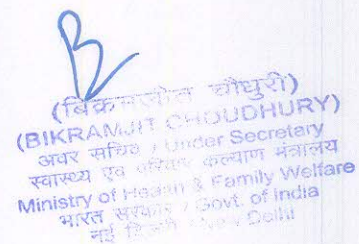 (बिक्रमजीत चौधुरी)
(BIKRAMJIT CHOUDHURY)
अवर सचिव / Under Secretary
स्वास्थ्य एवं परिवार कल्याण मंत्रालय
Ministry of Health & Family Welfare
भारत सरकार / Govt. of India
नई दिल्ली / New Delhi